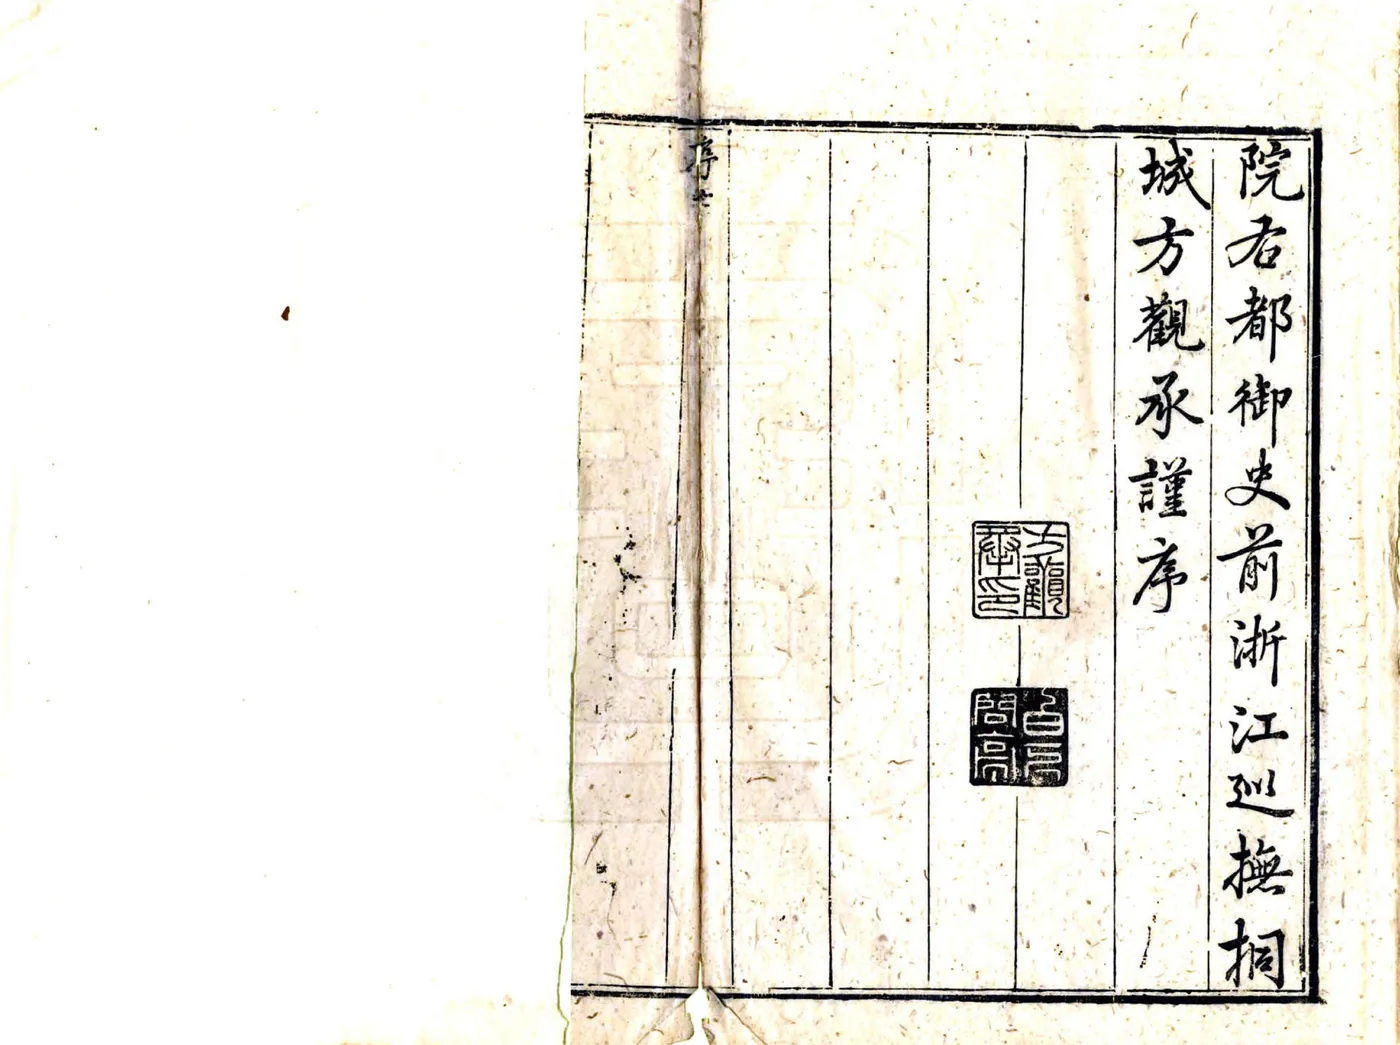 院右都御史前浙江巡撫桐
城方觀承謹序
方觀承印
問亭
序